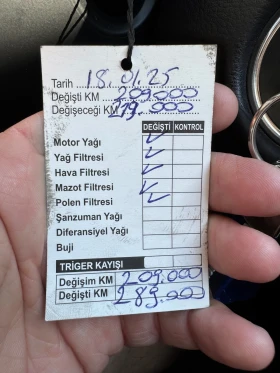 Tarih 18.01.25
Değişti KM 209.000
Değişeceği KM 219.000
DEĞİŞTİ KONTROL
Motor Yağı ✓
Yağ Filtresi ✓
Hava Filtresi ✓
Mazot Filtresi ✓
Polen Filtresi ✓
Şanzuman Yağı
Diferansiyel Yağı
Buji
TRİGER KAYIŞI
Değişim KM 209.000
Değişti KM 289.000